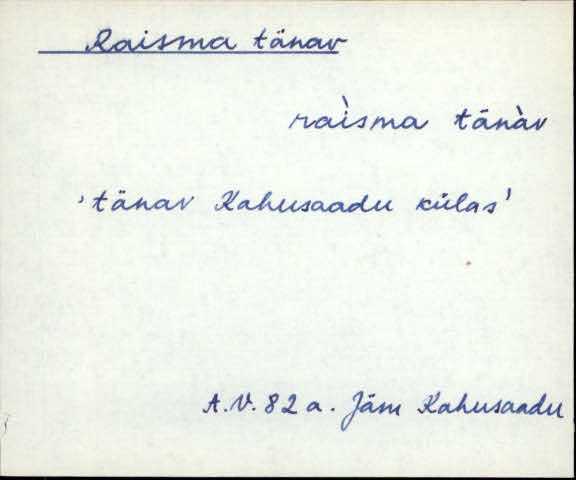 Raisma tänav
raìsma tänàv
'tänav Kahusaadu külas'
A.V. 82 a. Jäm Kahusaadu